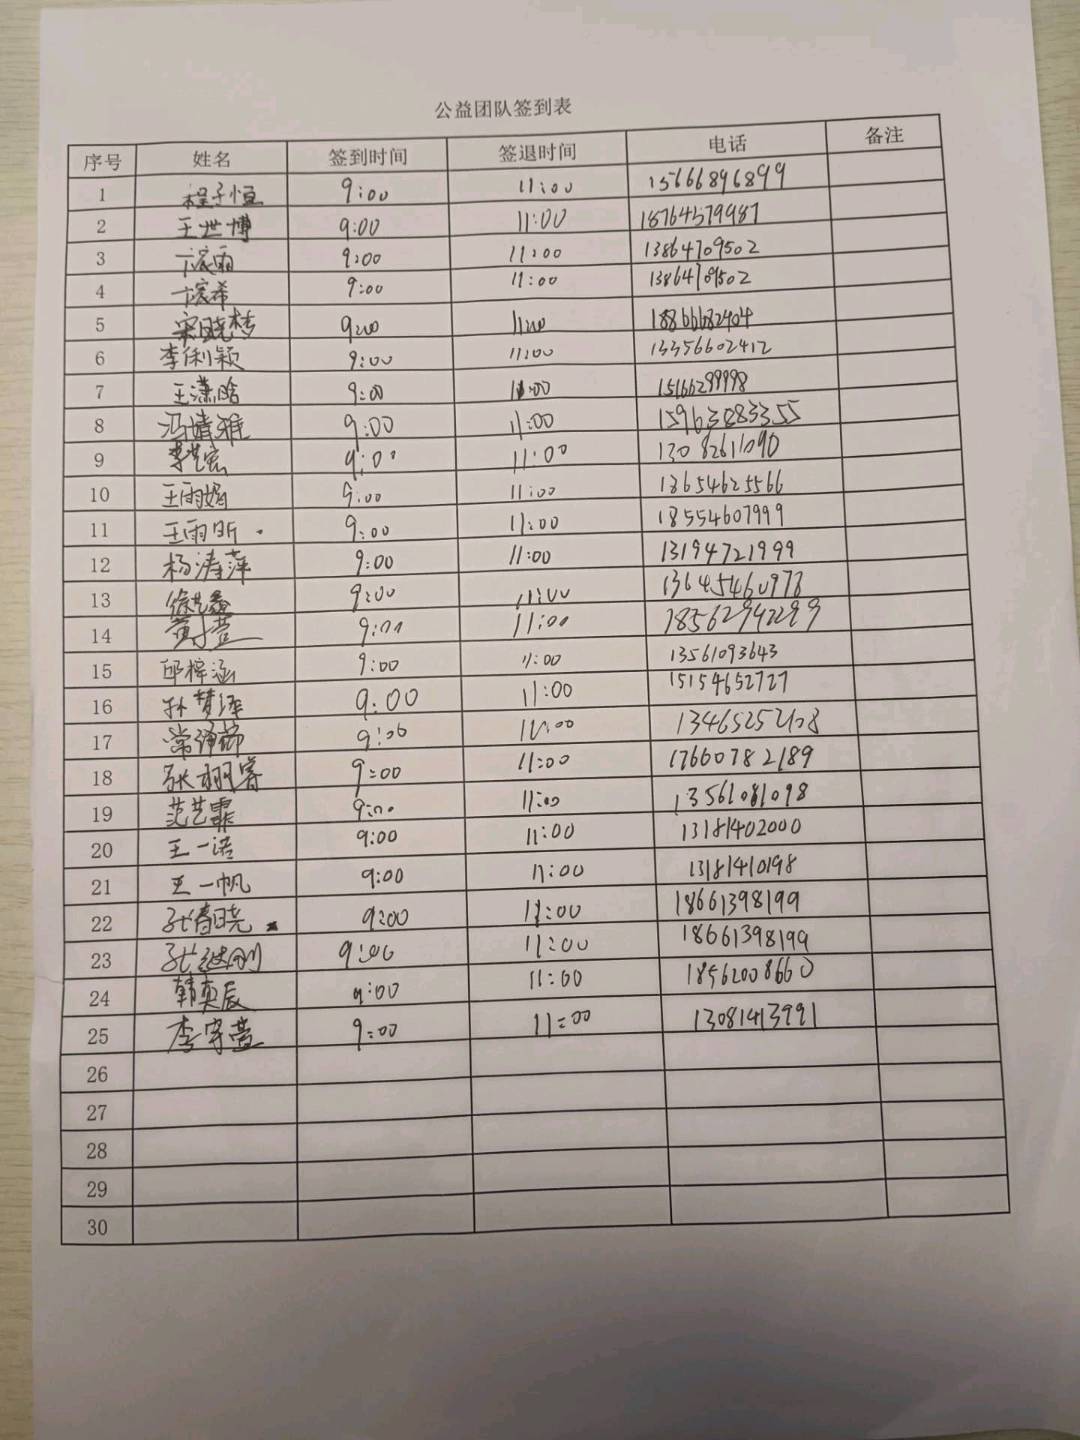 公益团队签到表
序号 姓名 签到时间 签退时间 电话 备注
1 程子恒 9:00 11:00 15666896899
2 王世博 9:00 11:00 18764579987
3 卞宸雨 9:00 11:00 13864709502
4 卞宸希 9:00 11:00 13864709502
5 宋晓梦 9:00 11:00 18866682404
6 李俐颖 9:00 11:00 13356602412
7 王潇晗 9:00 11:00 15166299998
8 冯婧雅 9:00 11:00
9 李艺宸 9:00 11:00
10 王雨嫣 9:00 11:00 13654625566
11 王雨昕 9:00 11:00 18554607999
12 杨涛萍 9:00 11:00 13194721999
13 徐艺鑫 9:00 11:00 13645460978
14 9:00 11:00 18562942299
15 邱梓涵 9:00 11:00 13561093643
16 孙梦泽 9:00 11:00 15154652727
17 9:00 11:00
18 张栩睿 9:00 11:00 17660782189
19 范艺霏 9:00 11:00 13561081098
20 王一诺 9:00 11:00 13181402000
21 王一帆 9:00 11:00 13181410198
22 张春晓 9:00 11:00 18661398199
23 张继刚 9:00 11:00 18661398199
24 韩奕辰 9:00 11:00 18562008660
25 李宇萱 9:00 11:00 13081413991
26
27
28
29
30